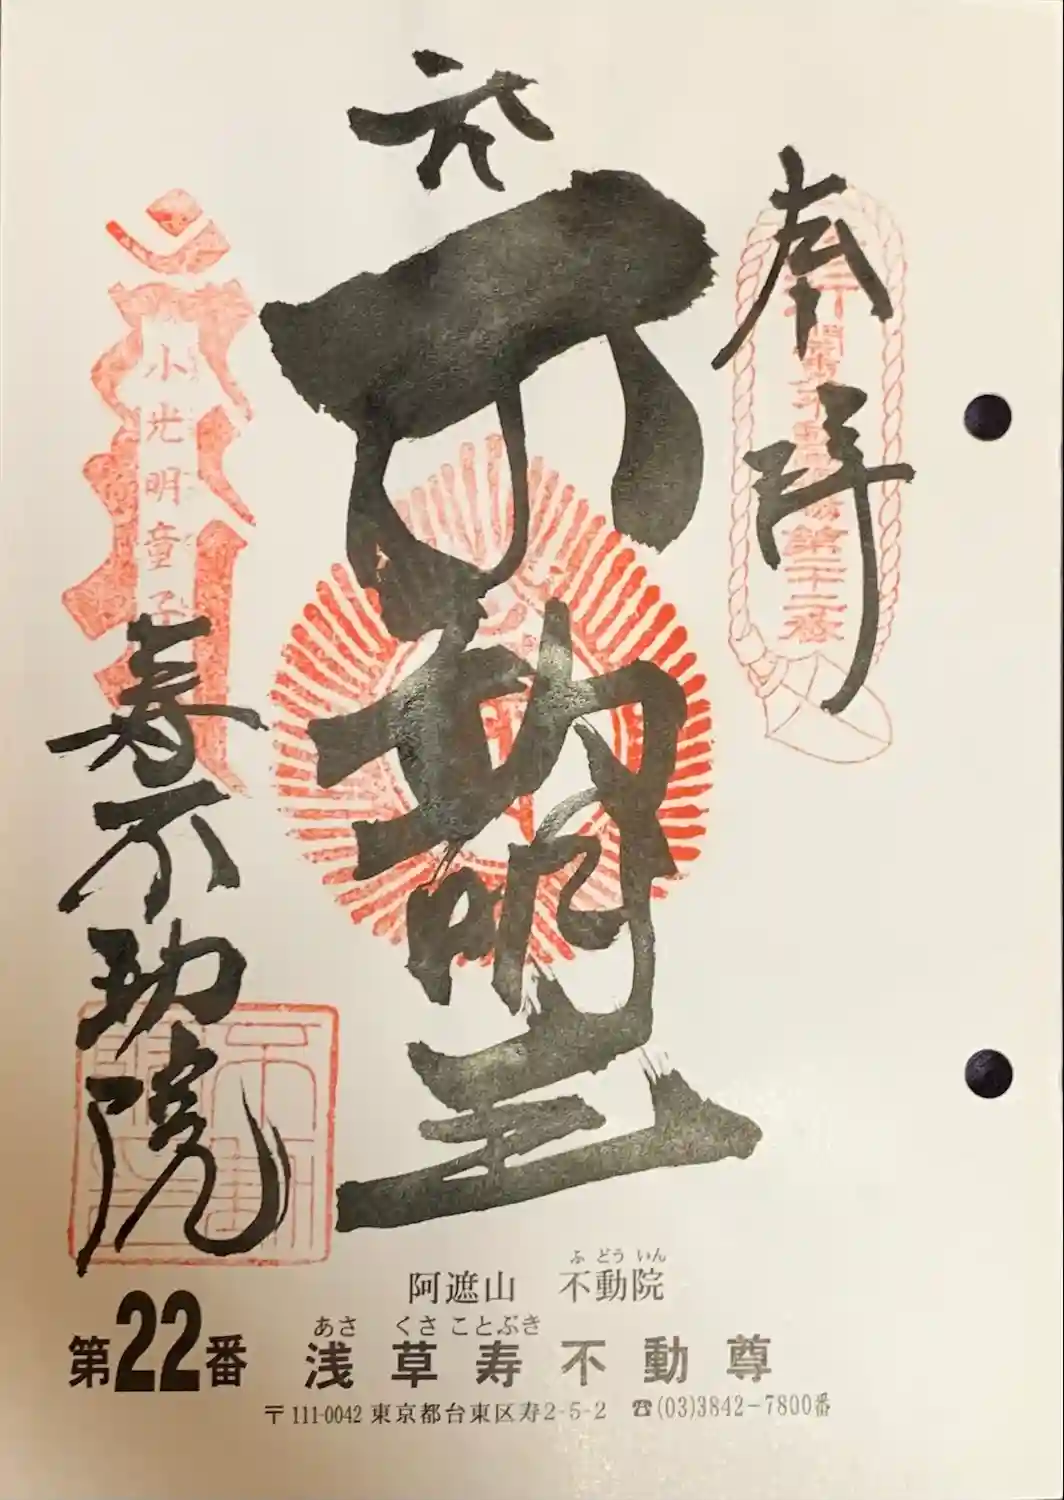 奉拝
第二十二番
不動明王
小光明童子
寿不動院
阿遮山 不動院
ふどういん
第22番 浅草寿不動尊
あさくさことぶき
〒111-0042 東京都台東区寿2-5-2 ☎(03)3842-7800番